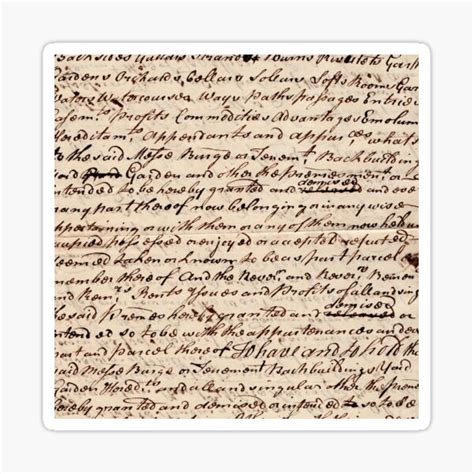 Backsides
Gardens Orchards Cellars Solears Lofts Rooms
Waters Watercourses Ways Paths passages
Easem.ts Profits Commodities Advantages Emolum
Hereditam.ts Appendants and Appur.ces what
to the said Messe Burge or Tenem.t Backbuildin
said Garden and other the premes ment.d or
intended to be hereby granted and demised and eve
many part there of now belonging or in any wise
appertaining or with them or any of them now
occupied possessed or enjoyed or accepted reputed
deemed taken or known to be as part parcel
member there of And the Rever.n and Rever.s Remain
and Rem.rs Rents Yssues and Profits of all and sing
the said Premes hereby granted and demised or
intended so to be with the appurtenances and eve
part and parcel there of To have and to hold the
said Messe Burge or Tenement Backbuildings Yard
Garden Hered.ts and all and singular other the preme
hereby granted and demised or intended so to be